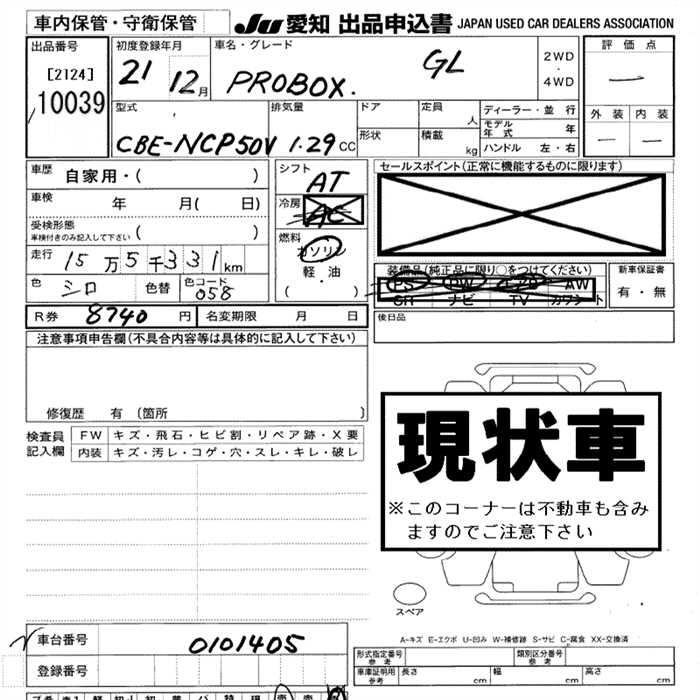 車内保管・守衛保管
JU 愛知 出品申込書 JAPAN USED CAR DEALERS ASSOCIATION
出品番号
[2124]
10039
初度登録年月
21 12月
車名・グレード
PROBOX. GL
2WD
・
4WD
評価点
—
外装 内装
— —
型式
CBE-NCP50V
排気量
1.29 CC
ドア
形状
定員 人
積載 kg
ディーラー・並 行
モデル年式 年
ハンドル 左・右
車歴 自家用・( )
車検 年 月( 日)
受検形態
車検付きのみ記入して下さい ( )
走行 15万5千331km
色 シロ 色替 色コード 058
シフト
AT
冷房
AC
燃料
ガソリン
軽・油
( )
セールスポイント(正常に機能するものに限ります)
装備品(純正品に限り○をつけてください)
PS PW エアB AW
SR ナビ TV カワシート
新車保証書
有・無
R券 8740円 名変期限 月 日
後日品
注意事項申告欄(不具合内容等は具体的に記入して下さい)
修復歴 有 〔箇所 〕
検査員
記入欄
FW キズ・飛石・ヒビ割・リペア跡・X要
内装 キズ・汚レ・コゲ・穴・スレ・キレ・破レ
現状車
※このコーナーは不動車も含み
ますのでご注意下さい
スペア
A-キズ E-エクボ U-凹み W-補修跡 S-サビ C-腐食 XX-交換済
車台番号 0101405
登録番号
型式指定番号
参考
類別区分番号
参考
車庫証明用
参考
長さ cm 幅 cm 高さ cm